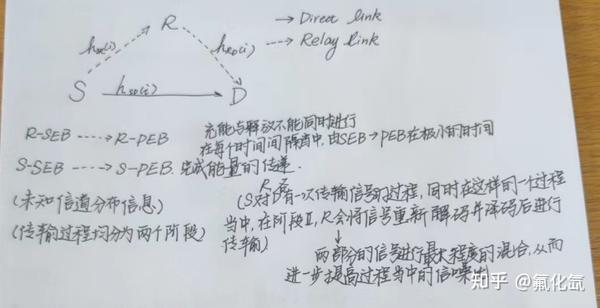 R
→ Direct link
h_SR(i)
h_RD(i)
⇢ Relay link
S
h_SD(i)
D
R-SEB ⇢ R-PEB
充能与释放不能同时进行
在每个时间间隔当中,由SEB→PEB在极小的时间
S-SEB ⇢ S-PEB 完成能量的传递.
(未知信道分布信息)
(S对R与D有一次传输信号的过程,同时在这样的一个过程
(传输过程均分为两个阶段)
当中,在阶段Ⅱ,R会将信号重新解码并译码后进行
传输)
两部分的信号进行最大程度的混合,从而
进一步提高过程当中的信噪比
知乎 @氟化氙